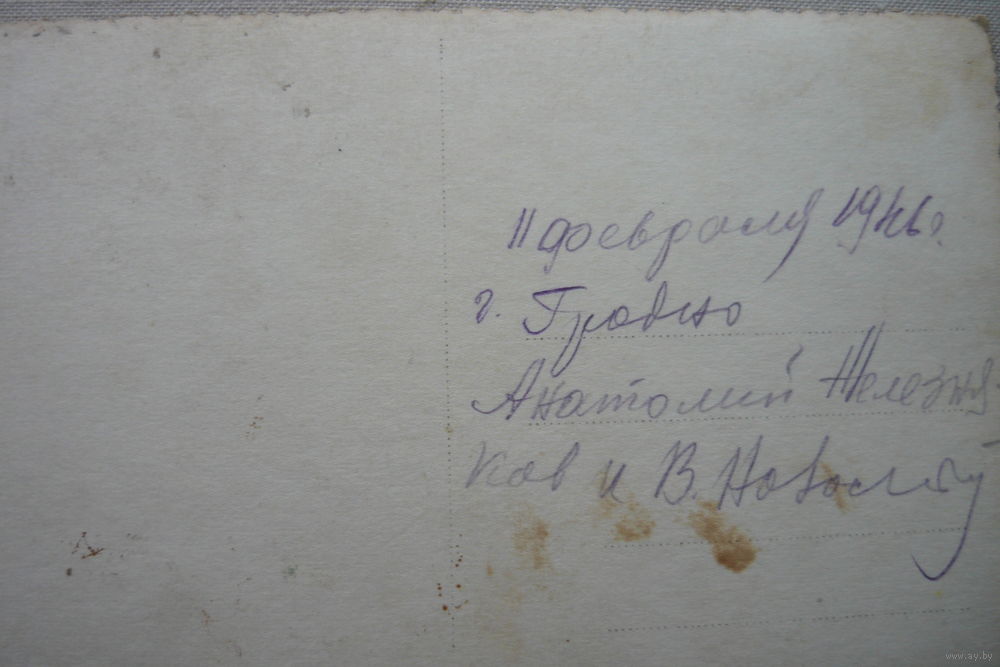 11 февраля 1946г.
г. Гродно
Анатолий Железня
ков и В.
www.ay.by